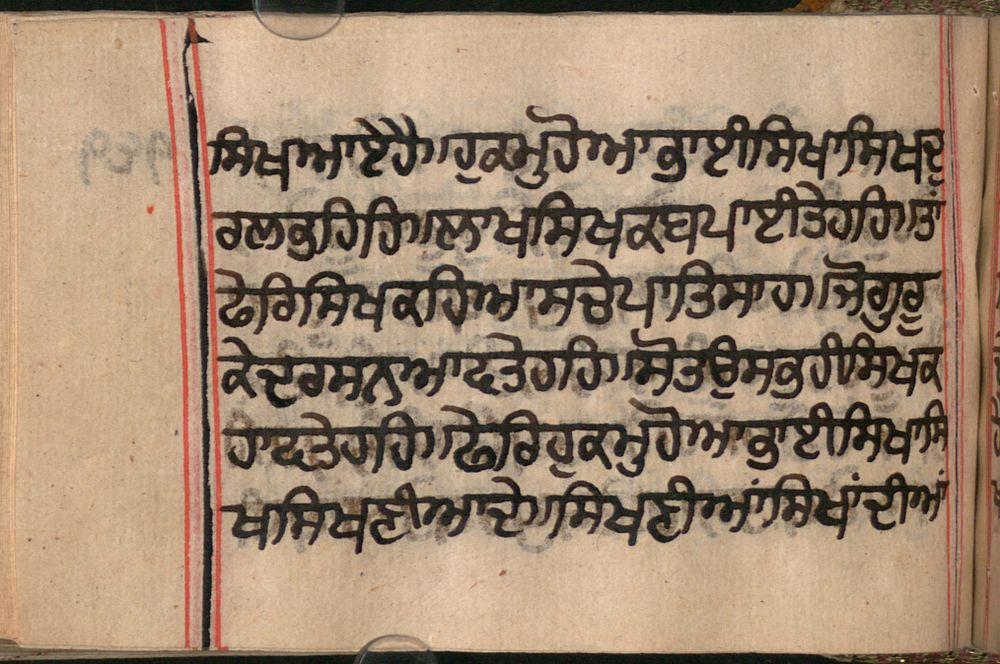 ਸਿਖਆਏਹੈ॥ਹੁਕਮੁਹੋਆਭਾਈਸਿਖਾਸਿਖਦੂ
ਰਲਭੁਹਿਹਿ॥ਲਾਖਸਿਖਕਬਪਾਈਤੇਹਹਿ॥ਤਾਂ
ਫੇਰਿਸਿਖਕਹਿਆਸਚੇਪਾਤਿਸਾਹ॥ਜੋਗੁਰੂ
ਕੇਦਰਸਨਆਵਤੇਹਹਿ॥ਸੋਤਉਸਭੁਹੀਸਿਖਕ
ਹਾਵਤੇਹਹਿ॥ਫੇਰਿਹੁਕਮੁਹੋਆਭਾਈਸਿਖਾਸਿ
ਖਸਿਖਣੀਆਦੇ॥ਸਿਖਣੀਆਂਸਿਖਾਂਦੀਆਂ